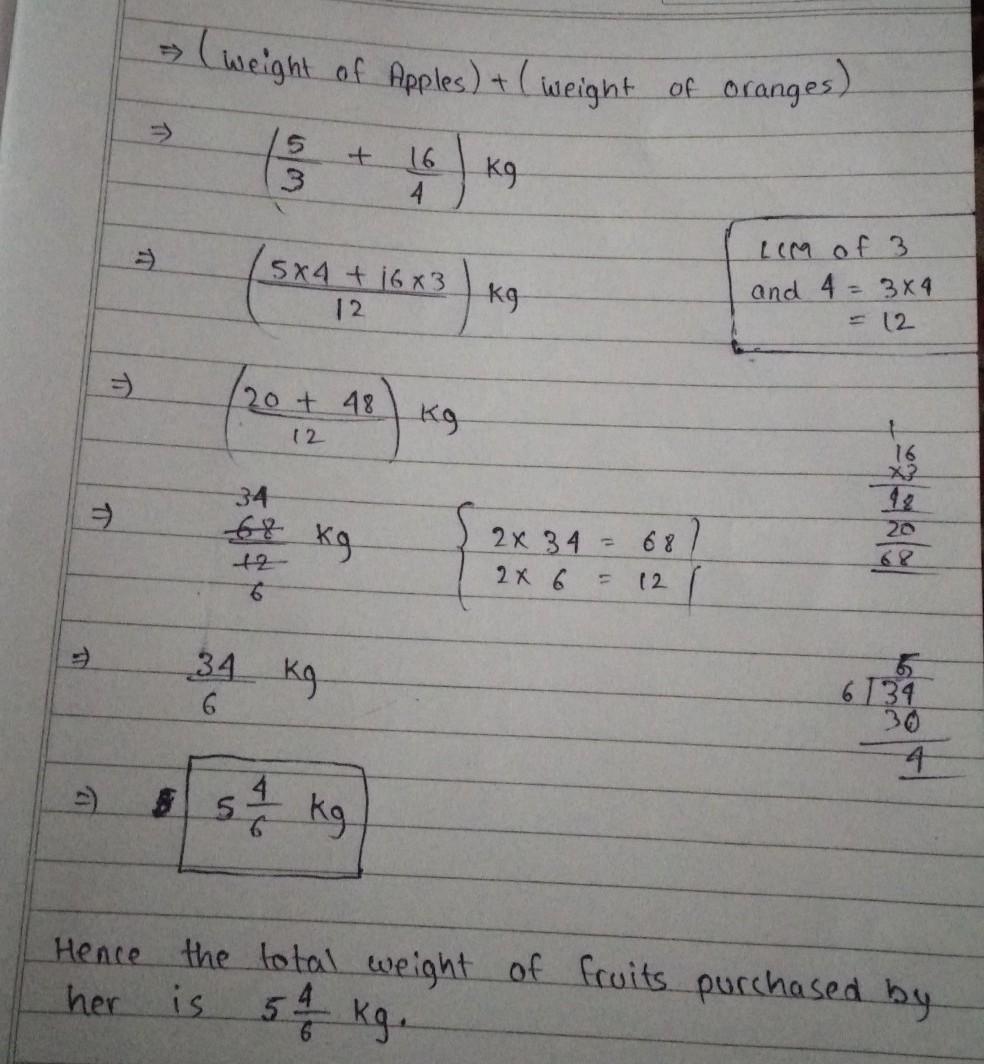 ⇒ (Weight of Apples) + (weight of oranges)
⇒ (5/3 + 16/4) kg
⇒ (5x4 + 16x3 / 12) kg
LCM of 3
and 4 = 3x4
= 12
⇒ (20 + 48 / 12) kg
1
16
x3
48
20
68
⇒ 34
68/12 kg
6
{ 2x 34 = 68 }
{ 2x 6 = 12 }
⇒ 34/6 kg
5
6 ) 34
30
4
⇒ 5 4/6 kg
Hence the total weight of fruits purchased by
her is 5 4/6 kg.